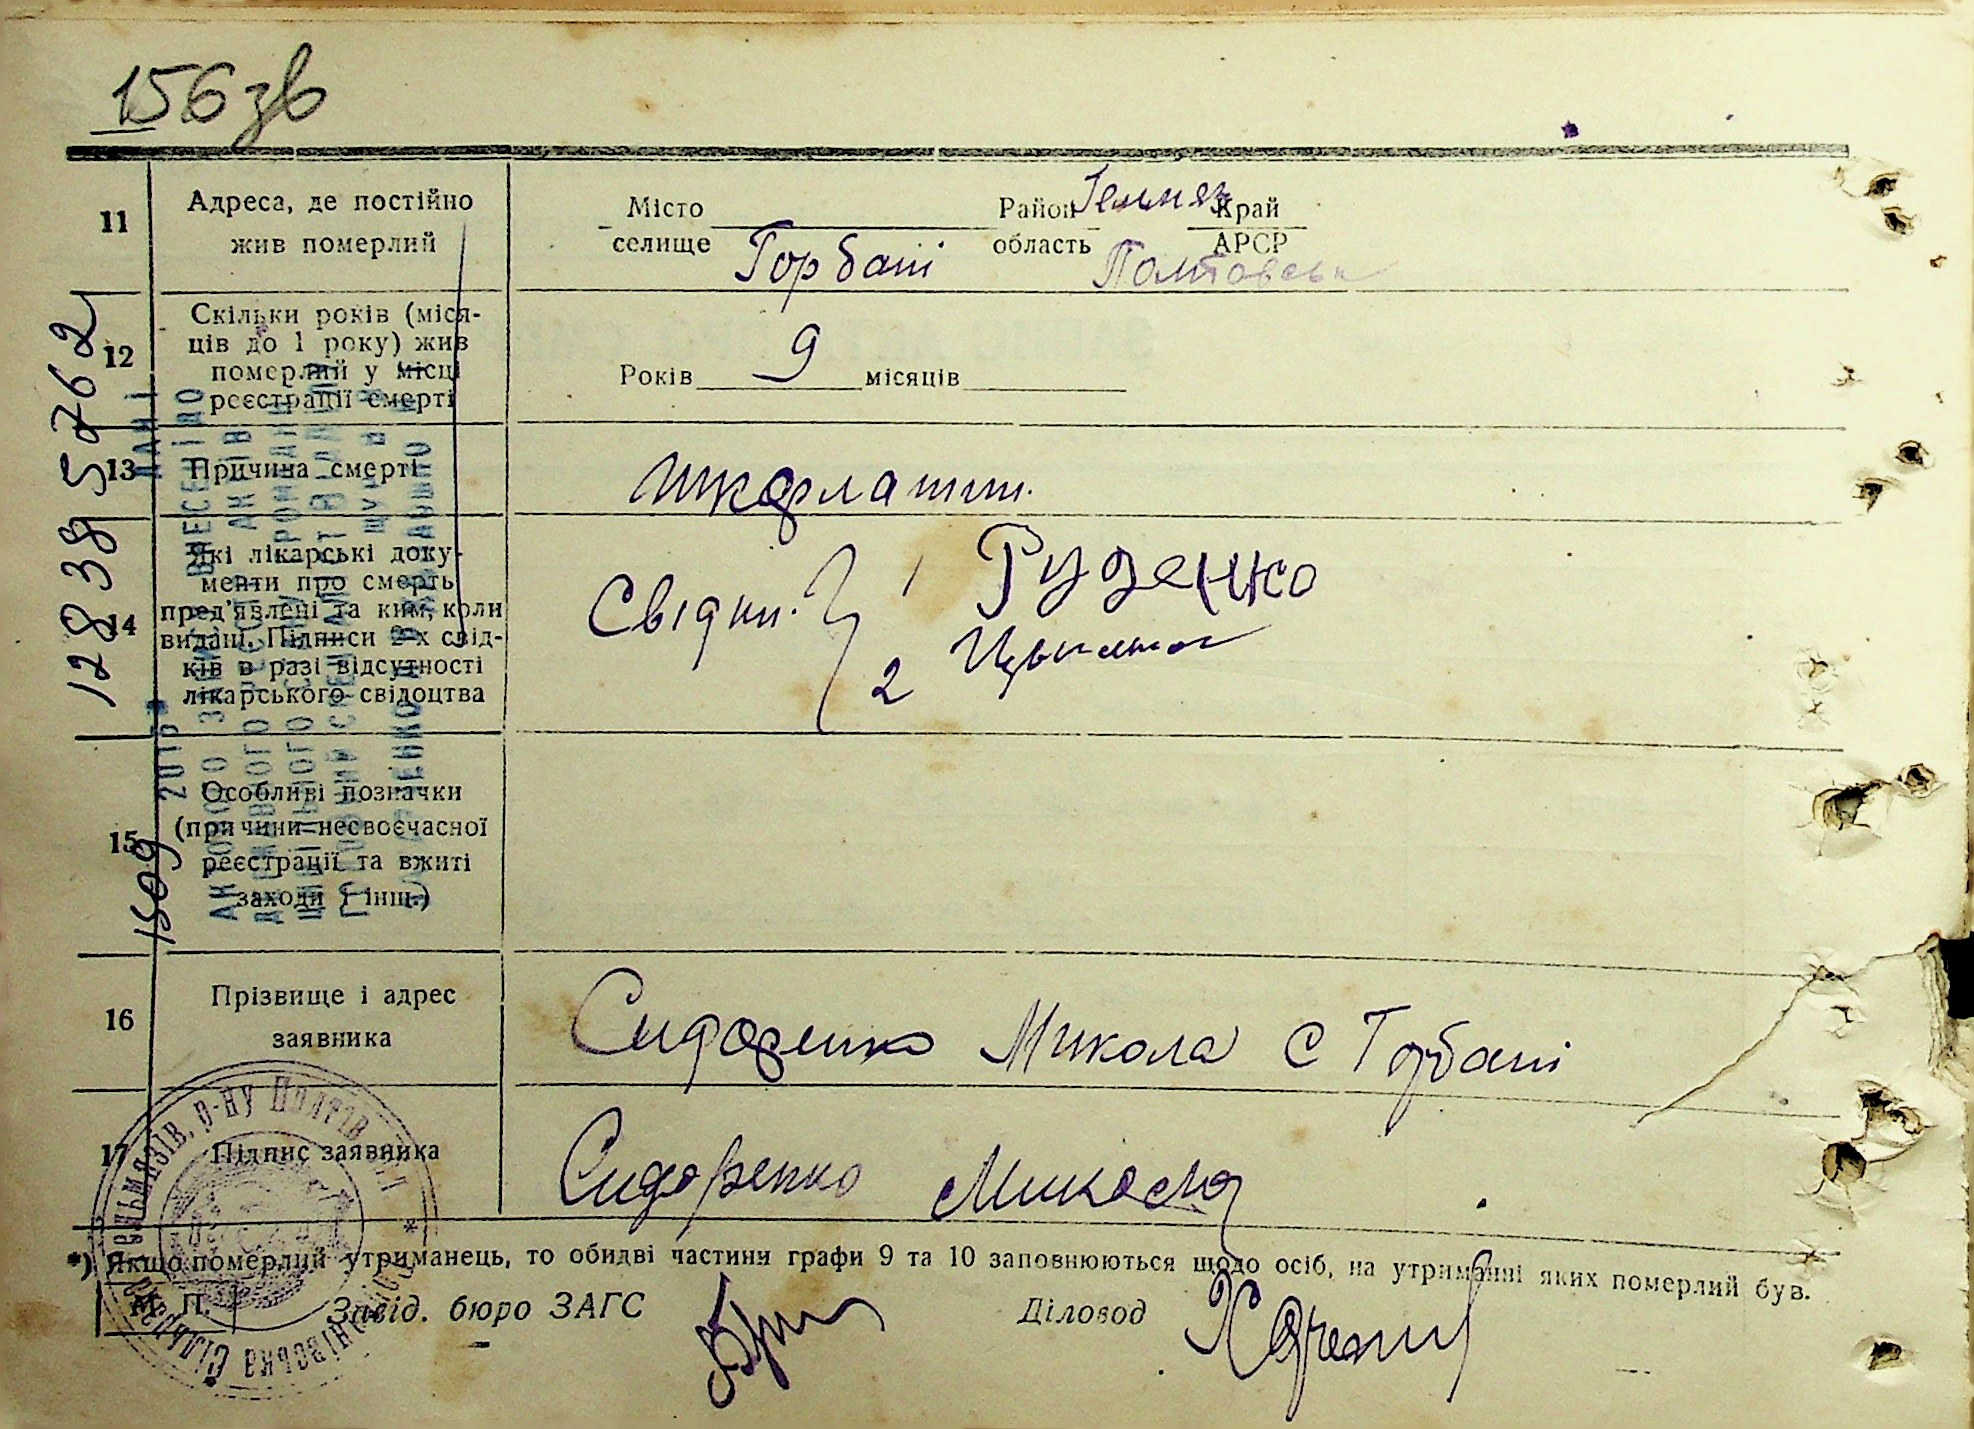 156 зв
11 Адреса, де постійно жив померлий
Місто селище Горбані Район область Гельмяз Полтовськ Край АРСР
12 Скільки років (міся-
ців до 1 року) жив
померлий у місці
реєстрації смерті
Років 9 місяців
13 Причина смерті
шкарлатин.
14 Які лікарські доку-
менти про смерть
пред'явлені та ким, коли
видані. Підписи 2-х свід-
ків в разі відсутності
лікарського свідоцтва
Свідки. 1 Руденко
2
15 Особливі позначки
(причини несвоєчасної
реєстрації та вжиті
заходи і інш.)
16 Прізвище і адрес
заявника
Сидоренко Микола с Горбані
17 Підпис заявника
Сидоренко Микола
*) Якщо померлий утриманець, то обидві частини графи 9 та 10 заповнюються щодо осіб, на утриманні яких померлий був.
М. П. Завід. бюро ЗАГС Діловод
12838 5762
1509